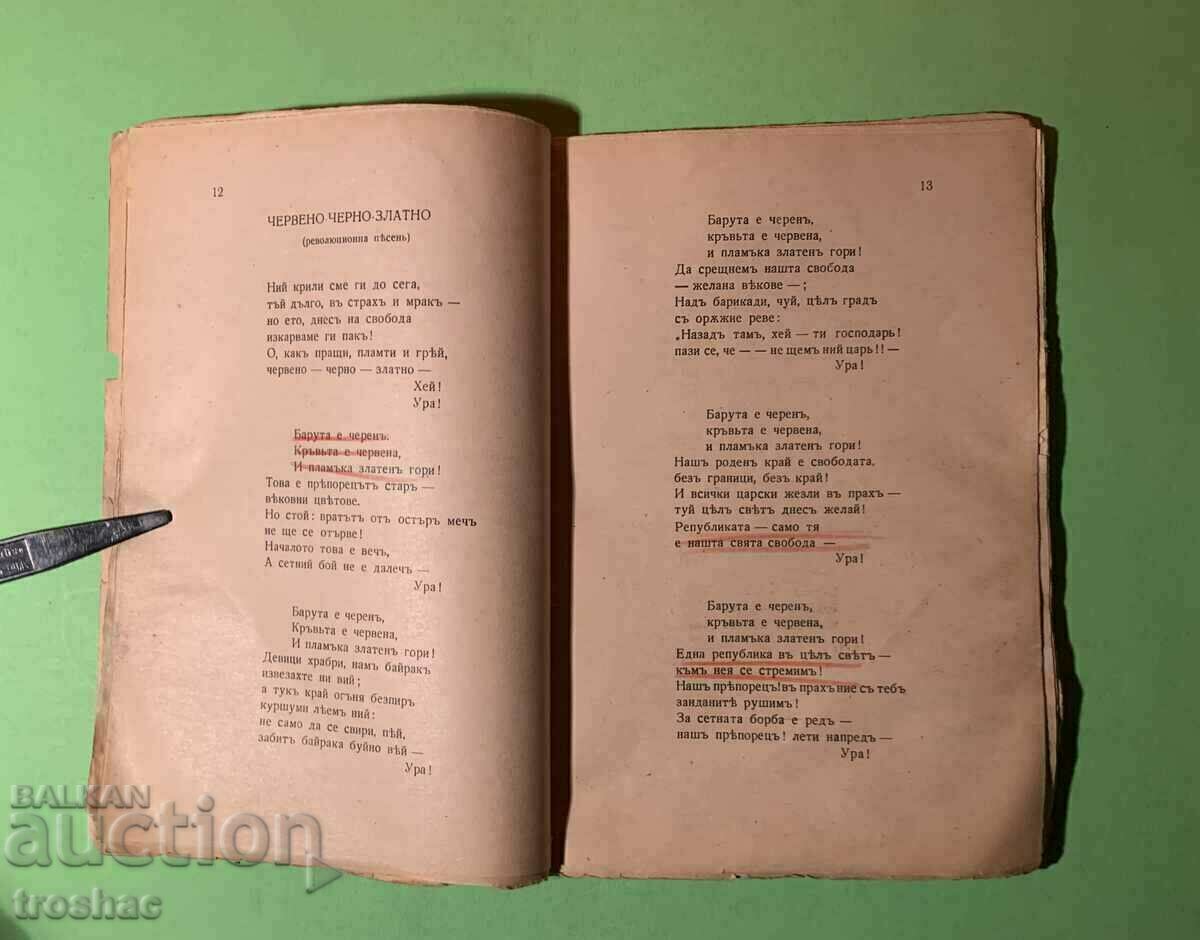 12
ЧЕРВЕНО-ЧЕРНО-ЗЛАТНО
(революционна пѣсень)
Ний крили сме ги до сега,
тъй дълго, въ страхъ и мракъ —
но ето, днесъ на свобода
изкарваме ги пакъ!
О, какъ пращи, пламти и грѣй,
червено — черно — златно —
Хей!
Ура!
Барута е черенъ.
Кръвьта е червена,
И пламъка златенъ гори!
Това е прѣпорецътъ старъ —
вѣковни цвѣтове.
Но стой: врагътъ отъ остъръ мечъ
не ще се отърве!
Началото това е вечъ,
А сетний бой не е далечъ —
Ура!
Барута е черенъ,
Кръвьта е червена,
И пламъка златенъ гори!
Девици храбри, намъ байракъ
извезахте ни вий;
а тукъ край огъня безпиръ
куршуми лѣемъ ний:
не само да се свири, пѣй,
забитъ байрака буйно вѣй —
Ура!
13
Барута е черенъ,
кръвьта е червена,
и пламъка златенъ гори!
Да срещнемъ нашта свобода
— желана вѣкове —;
Надъ барикади, чуй, цѣлъ градъ
съ орѫжие реве:
„Назадъ тамъ, хей — ти господарь!
пази се, че — — не щемъ ний царь!! —
Ура!
Барута е черенъ,
кръвьта е червена,
и пламъка златенъ гори!
Нашъ роденъ край е свободата.
безъ граници, безъ край!
И всички царски жезли въ прахъ —
туй цѣлъ свѣтъ днесъ желай!
Републиката — само тя
е нашта свята свобода —
Ура!
Барута е черенъ,
кръвьта е червена,
и пламъка златенъ гори!
Една република въ цѣлъ свѣтъ —
към нея се стремимъ!
Нашъ прѣпорецъ! въ прахъ ние съ тебъ
занданитѣ рушимъ!
За сетната борба е редъ —
нашъ прѣпорецъ! лети напредъ —
Ура!
BALKAN
auction
troshac